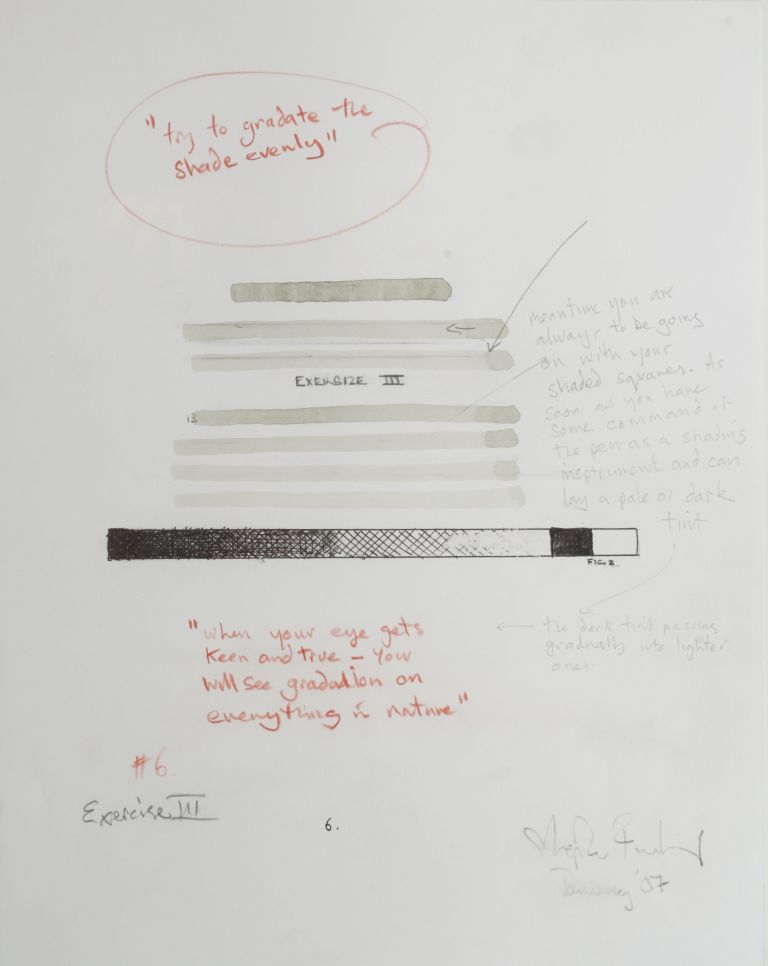 "try to gradate the
shade evenly"
meantime you are
always to be going
on with your
shaded squares. As
soon as you have
some command of
the pen as a shading
insptrument and can
lay a pale or dark
tint
EXERSIZE III
13
FIG 2
the dark tint passing
gradually into lighter
ones.
"when your eye gets
keen and true – you
will see gradation on
everything in nature"
#6.
Exercise III
6.
January '07